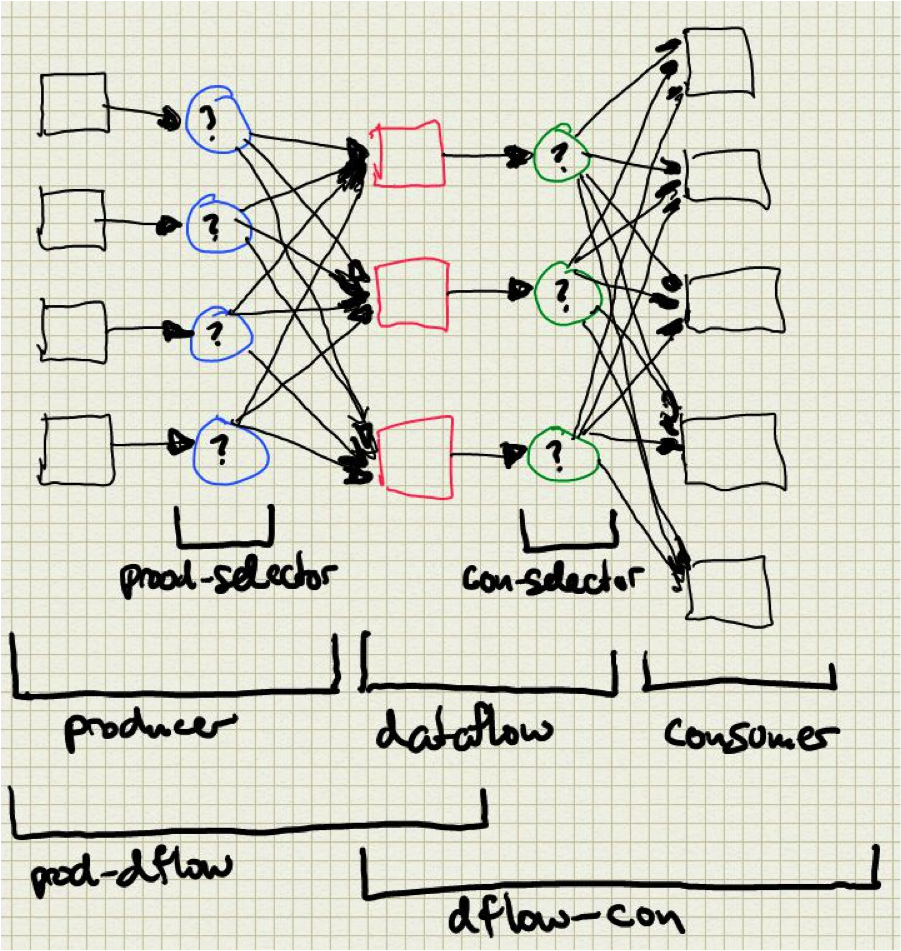 ? ?
? ?
? ?
?
?
prod-selector con-selector
producer dataflow consumer
prod-dflow
dflow-con